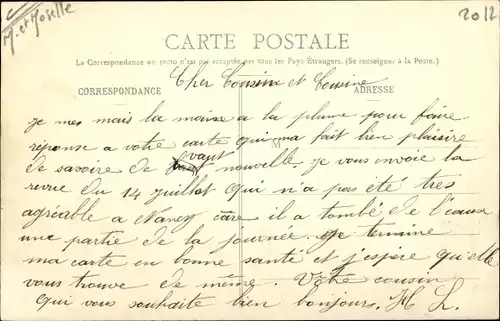 M. et Moselle
2012
CARTE POSTALE
La Correspondance au recto n'est pas acceptée par tous les Pays Étrangers. (Se renseigner à la Poste.)
CORRESPONDANCE
ADRESSE
Cher Cousin et Cousine
je mes mais la maixe a la plume pour faire
réponse a votre carte qui ma fait bien plaisire
de savoire de vaus nouvelle. je vous envoie la
revue du 14 juillet qui n'a pas été tres
agréable a Nancy care il a tombé de l'eaux
une partie de la journée. Je termine
ma carte en bonne santé et j'espère qu'elle
vous trouve de même. Votre cousin
qui vous souhaite bien bonjour. H L.